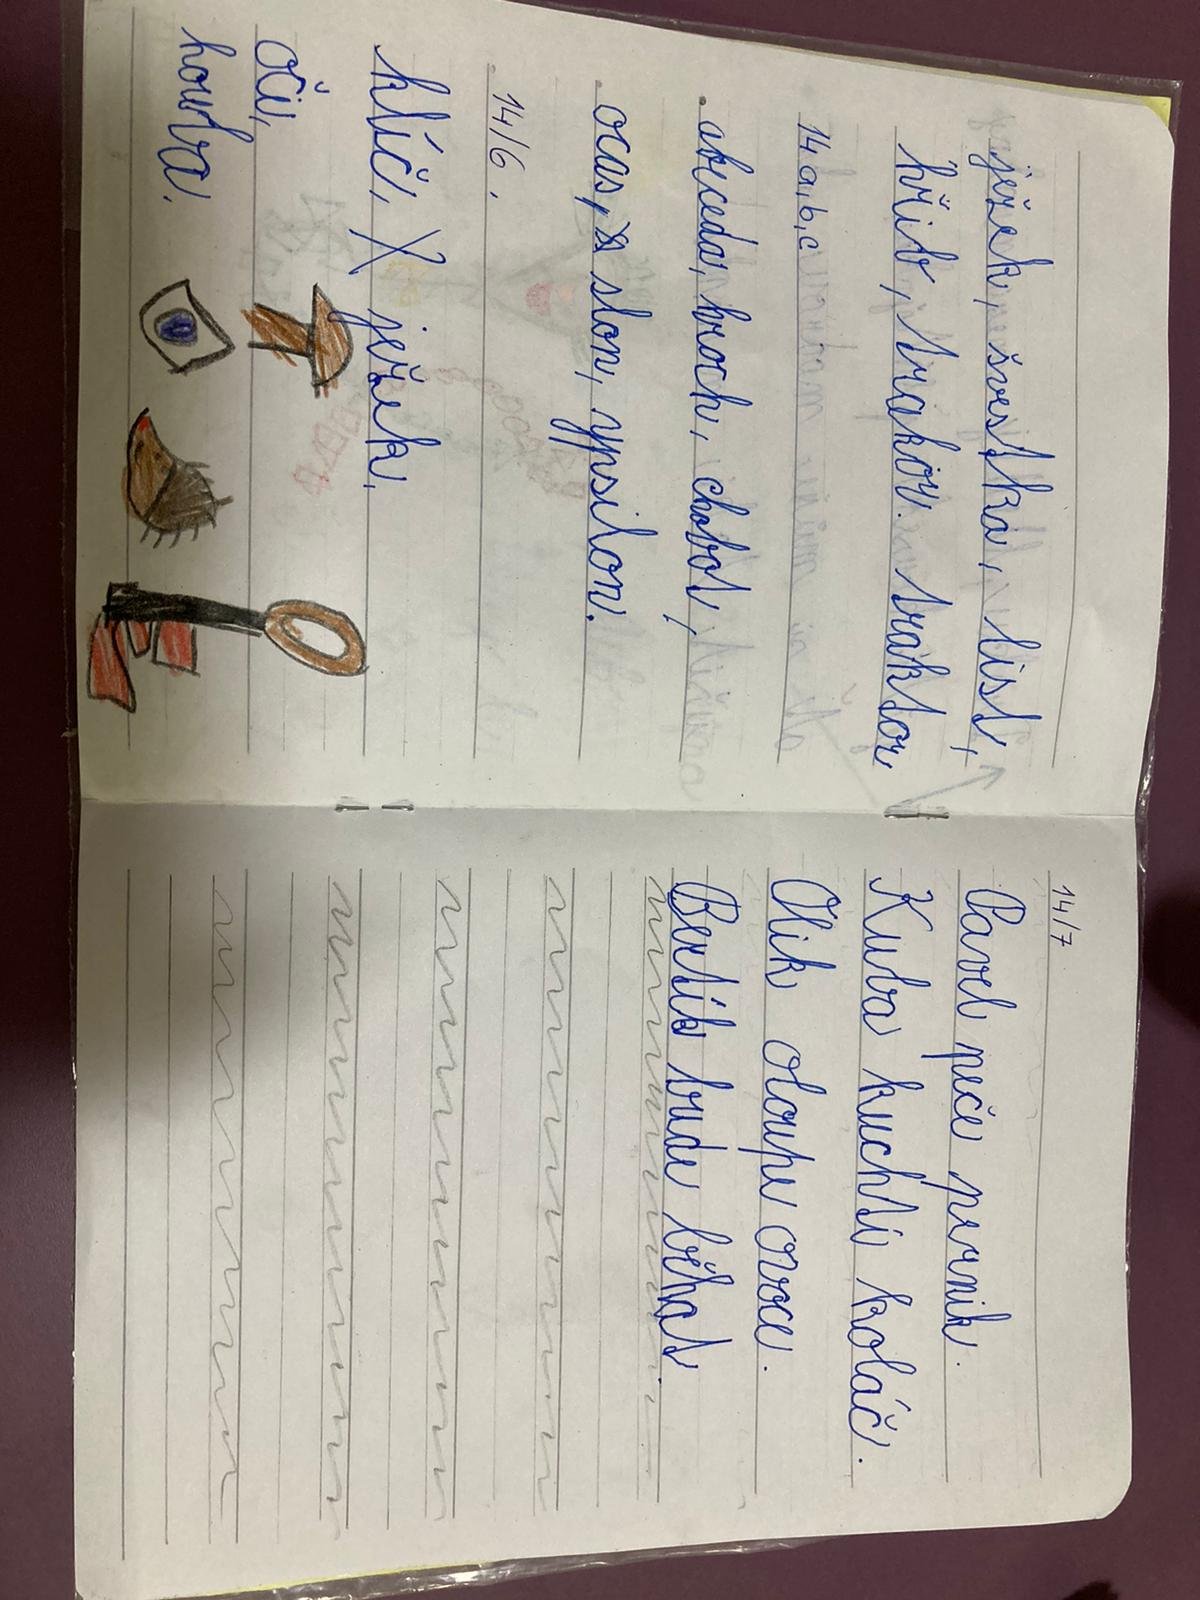 ježek, švestka, list,
hřib, trakor. traktor
14 a, b, c
abeceda, hroch, chobot,
ocas, slon, ypsilon.
14/6.
klíč, X ježek,
oči,
houba.
14/7
Pavel peče perník.
Kuba kuchtí koláč.
Olík oloupe ovoce.
Bertík bude běhat.